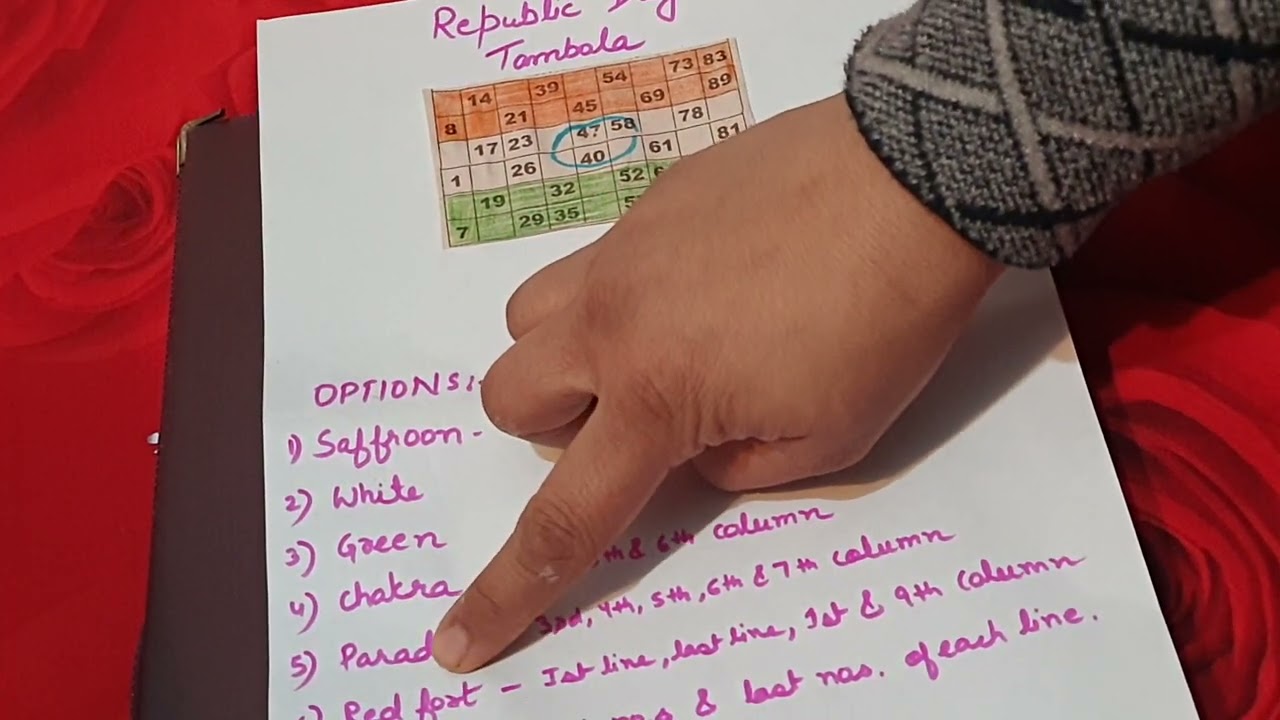 Republic Day
Tambola
14 39 54 73 83
8 21 45 69 89
17 23 47 58 78
1 26 40 61 81
19 32 52
7 29 35
OPTIONS:-
1) Saffroon -
2) White
3) Green
4) Chakra th & 6th column
5) Parad 3rd, 4th, 5th, 6th & 7th column
Red fort - Ist line, last line, 1st & 9th column
& last nos. of each line.